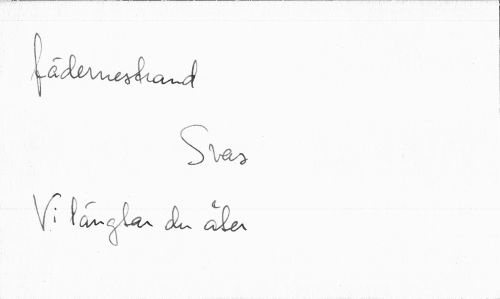 fädernestrand
Vi längtar du åter